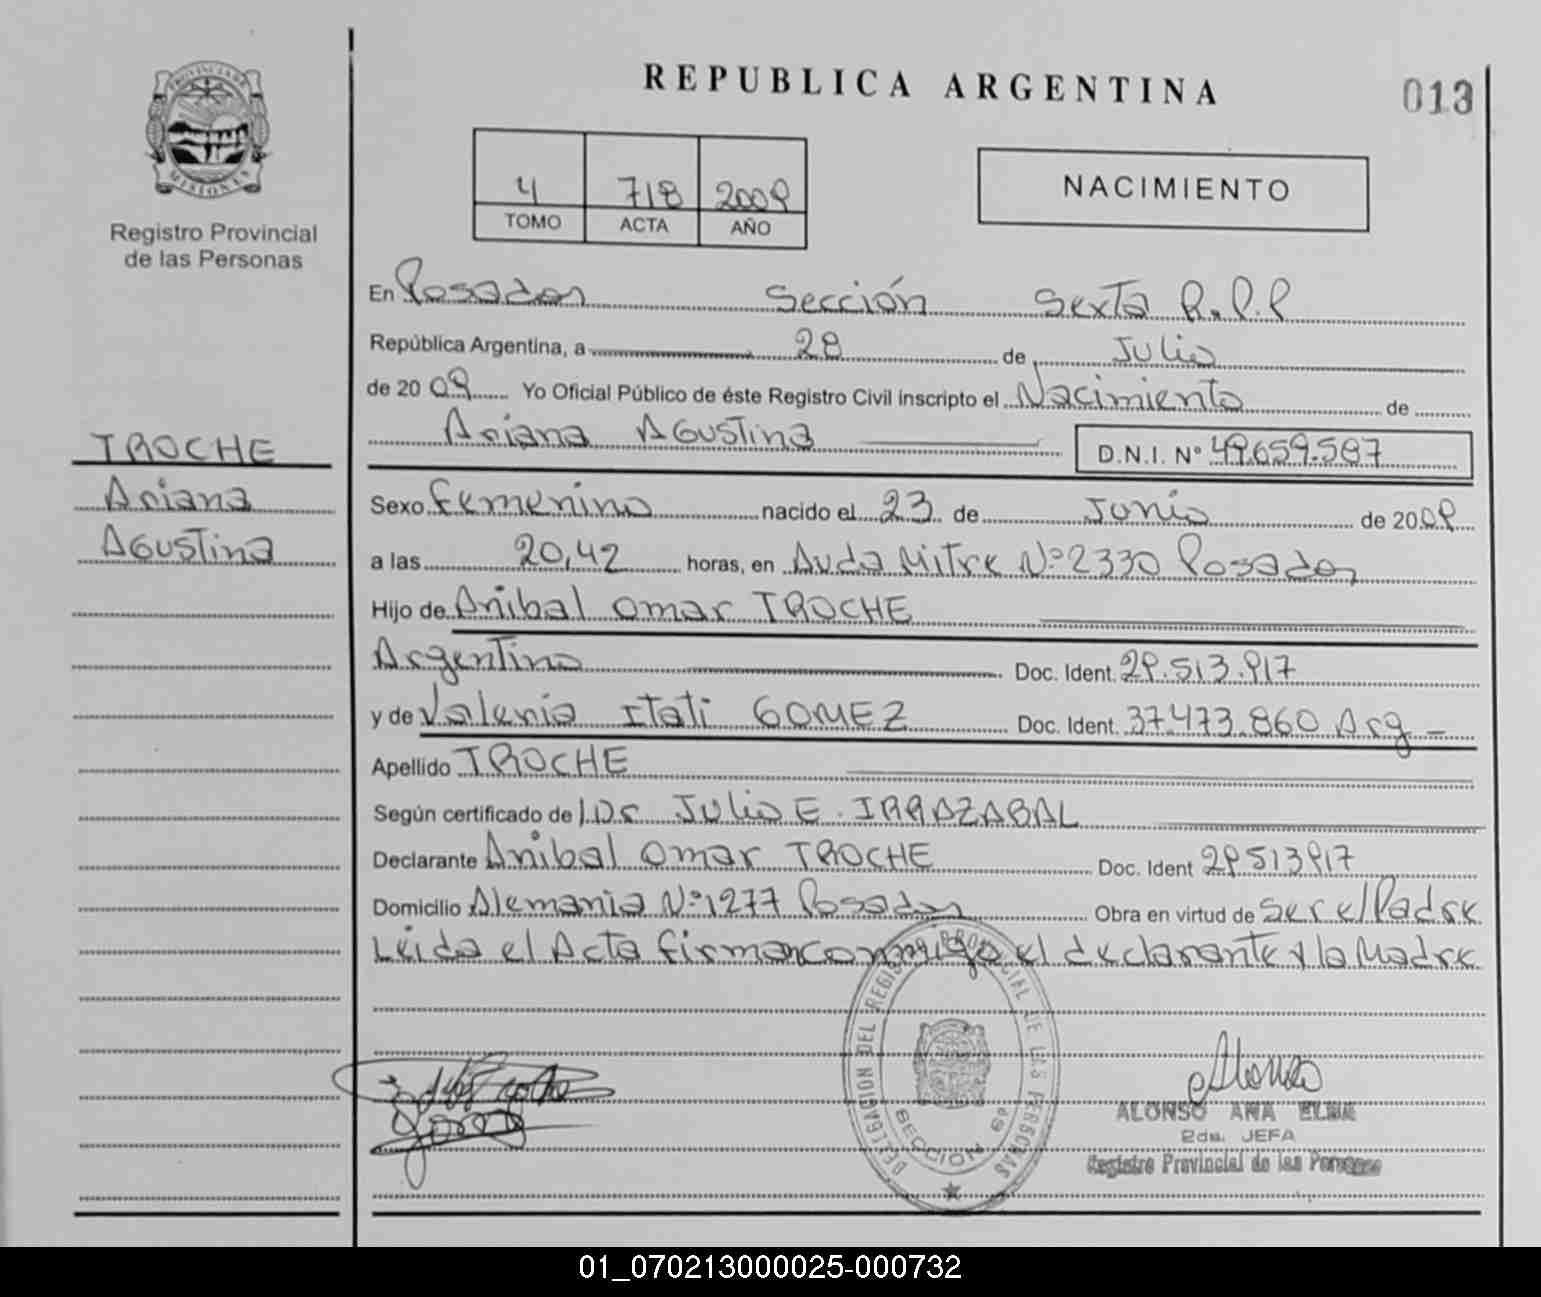 PROVINCIA DE
MISIONES
Registro Provincial
de las Personas
TROCHE
Ariana
Agustina
REPUBLICA ARGENTINA
013
4 718 2009
TOMO ACTA AÑO
NACIMIENTO
En Posadas Sección Sexta R.P.P
República Argentina, a 28 de Julio
de 2009 Yo Oficial Público de éste Registro Civil inscripto el Nacimiento de
Ariana Agustina D.N.I. N° 49.659.587
Sexo Femenino nacido el 23 de Junio de 2009
a las 20,42 horas, en Avda Mitre Nº 2330 Posadas
Hijo de Anibal Omar TROCHE
Argentino Doc. Ident. 29.513.917
y de Valeria Itati GOMEZ Doc. Ident. 37.473.860 Arg -
Apellido TROCHE
Según certificado de Dr Julio E. IRRAZABAL
Declarante Anibal Omar TROCHE Doc. Ident 29513917
Domicilio Alemania Nº 1277 Posadas Obra en virtud de Ser el Padre
Leida el Acta firman conmigo el declarante y la Madre
DELEGACION DEL REGISTRO PROVINCIAL DE LAS PERSONAS
SECCION 6ª
Alonso
ALONSO ANA ELBA
2da. JEFA
Registro Provincial de las Personas
01_070213000025-000732